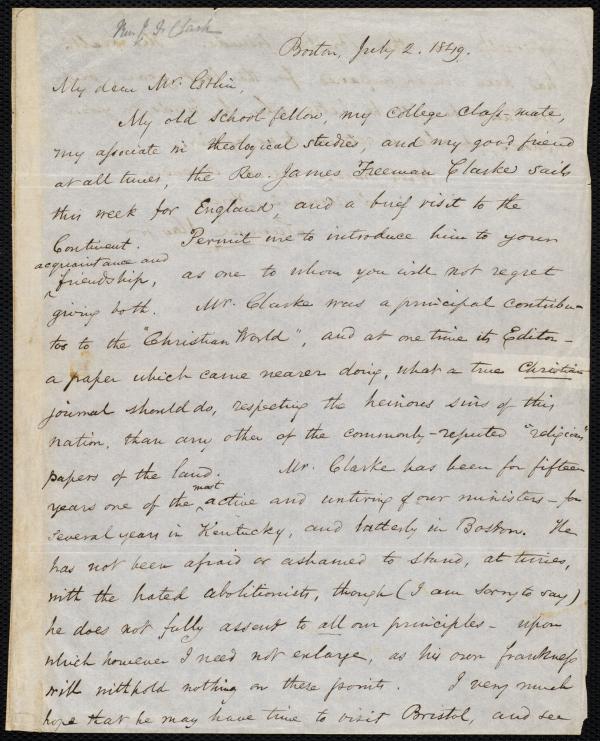 Rev. J. F. Clark
Boston, July 2. 1849.
My dear Mr. Estlin,
My old school-fellow, my College Class-mate,
my associate in theological studies, and my good friend
at all times, the Rev. James Freeman Clarke sails
this week for England, and a brief visit to the
Continent. Permit me to introduce him to your
acquaintance and
^ friendship, as one to whom you will not regret
giving both. Mr. Clarke was a principal contribu-
tor to the "Christian World", and at one time its Editor -
a paper which came nearer doing, what a true Christian
journal should do, respecting the heinous sins of this
nation, than any other of the commonly-reputed "religious"
papers of the land. Mr. Clarke has been for fifteen
most
years one of the ^ active and untiring of our ministers - for
several years in Kentucky, and latterly in Boston. He
has not been afraid or ashamed to stand, at times,
with the hated abolitionists, though (I am sorry to say)
he does not fully assent to all our principles - upon
which however I need not enlarge, as his own frankness
will withhold nothing on these points. I very much
hope that he may have time to visit Bristol, and see